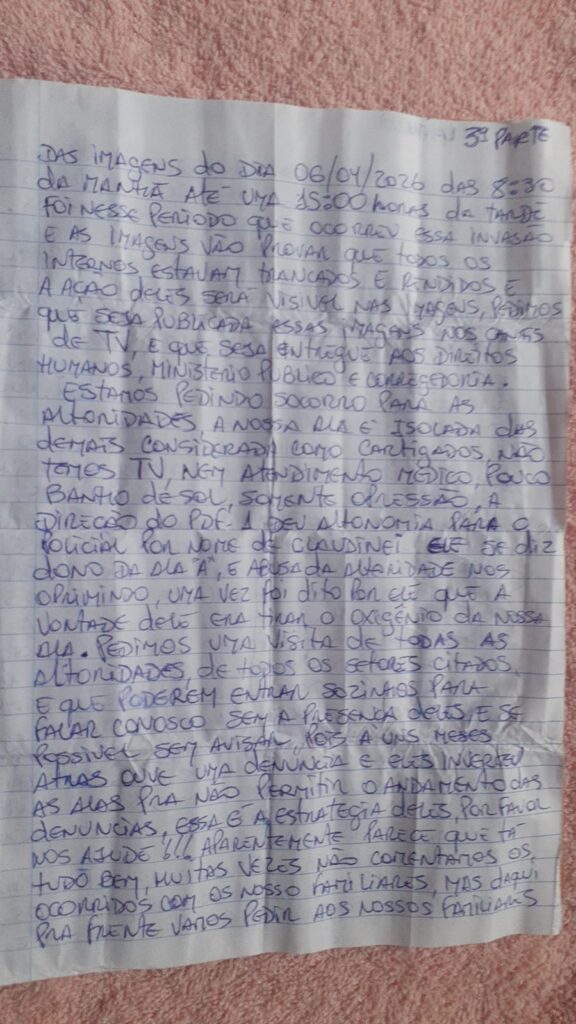 3ª PARTE
DAS IMAGENS DO DIA 06/04/2026 DAS 8:30
DA MANHÃ ATÉ UMA 15:00 HORAS DA TARDE
FOI NESSE PERIODO QUE OCORREU ESSA INVASÃO
E AS IMAGENS VÃO PROVAR QUE TODOS OS
INTERNOS ESTAVAM TRANCADOS E RENDIDOS E
A AÇÃO DELES SERÁ VISIVEL NAS IMAGENS, PEDIMOS
QUE SEJA PUBLICADA ESSAS IMAGENS NOS CANAIS
DE TV, E QUE SEJA ENTREGUE AOS DIREITOS
HUMANOS, MINISTÉRIO PUBLICO E CORREGEDORIA.
ESTAMOS PEDINDO SOCORRO PARA AS
ALTORIDADES, A NOSSA ALA É ISOLADA DAS
DEMAIS CONSIDERADA COMO CASTIGADOS, NÃO
TEMOS TV, NEM ATENDIMENTO MÉDICO, POUCO
BANHO DE SOL, SOMENTE OPRESSÃO, A
DIREÇÃO DO PDF-1 DEU ALTONOMIA PARA O
POLICIAL POR NOME DE CLAUDINEI ELE SE DIZ
DONO DA ALA "A", E ABUSA DA ALTORIDADE NOS
OPRIMINDO, UMA VEZ FOI DITO POR ELE QUE A
VONTADE DELE ERA TIRAR O OXIGÊNIO DA NOSSA
ALA. PEDIMOS UMA VISITA DE TODAS AS
ALTORIDADES, DE TODOS OS SETORES CITADOS,
E QUE PODEREM ENTRAR SOZINHOS PARA
FALAR CONOSCO SEM A PRESENÇA DELES, E SE
POSSIVEL SEM AVISAR, POIS A UNS MESES
ATRAS OUVE UMA DENUNCIA E ELES INVERTEU
AS ALAS PRA NÃO PERMITIR O ANDAMENTO DAS
DENUNCIAS, ESSA É A ESTRATEGIA DELES, POR FAVOR
NOS AJUDE!!! APARENTEMENTE PARECE QUE TÁ
TUDO BEM, MUITAS VEZES NÃO COMENTAMOS OS
OCORRIDOS COM OS NOSSO FAMILIARES, MAS DAQUI
PRA FRENTE VAMOS PEDIR AOS NOSSOS FAMILIARES